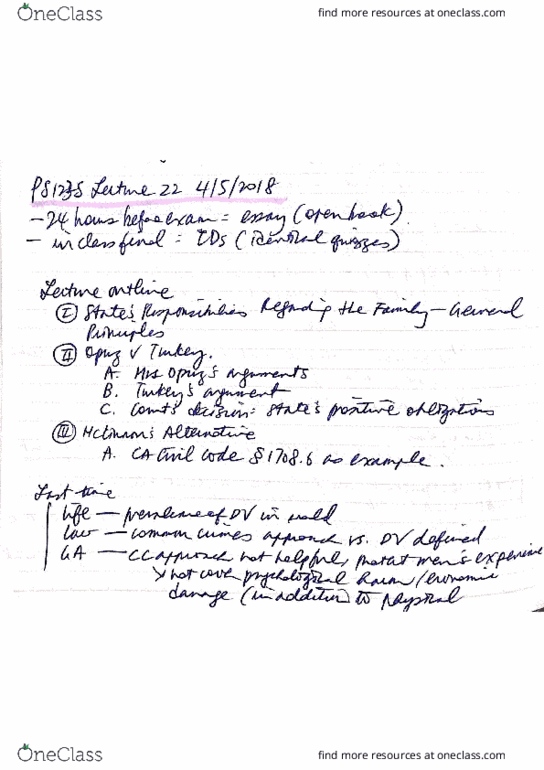 OneClass
find more resources at oneclass.com
Lecture 22 4/5/2018
- 24 hours before exam = essay (open book)
- in class final = IDs (identical quizzes)
Lecture outline
I State's Responsibilities Regarding the Family - General
Principles
II Opuz v Turkey.
A. Mrs Opuz's arguments
B. Turkey's argument
C. Court's decision: State's positive obligations
III Alternative
A. CA Civil code § 1708.6 as example.
Last time
life — prevalence of DV in world
law — common crimes approach vs. DV defined
GA — CC approach not helpful, men's experience
not cover psychological harm / economic
damage (in addition) to physical
OneClass
find more resources at oneclass.com